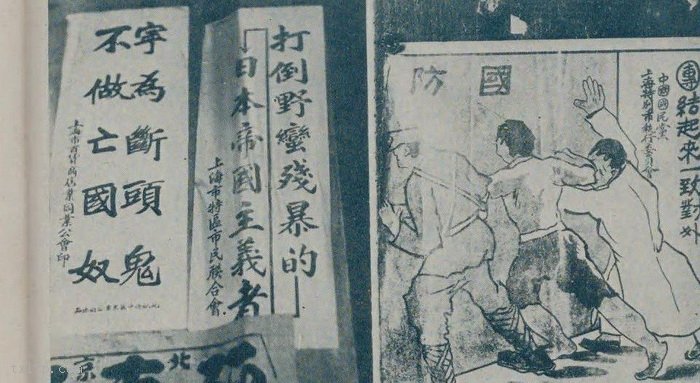 寧為斷頭鬼
不做亡國奴
打倒野蠻殘暴的—
「日本帝國主義者
上海市特區市民聯合會
國防
團結起來一致對外
中國國民黨
上海特別市執行委員會
北
京